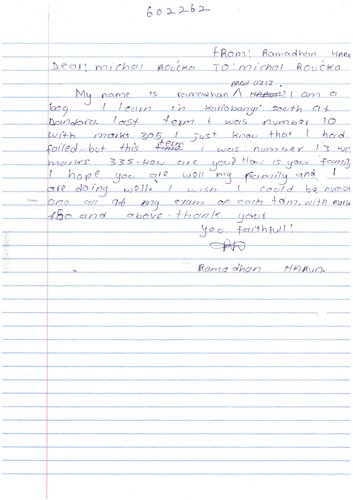 602262
FROM: Ramadhan HARU
Dear: michal Roučka TO: michal Roučka
My name is ramadhan I am a
boy I learn in Kariobangi south at
Dandora. last term I was number 10
with marks 305 I just know that I had
failed. but this I was number 13 with
marks 335. How are you? How is your family
I hope you are well my family and I
are doing well. I wish I could be numbe
one on at my exam of each term. with marks
450 and above. thank you!
You faithfull!
Ramadhan HARUN.